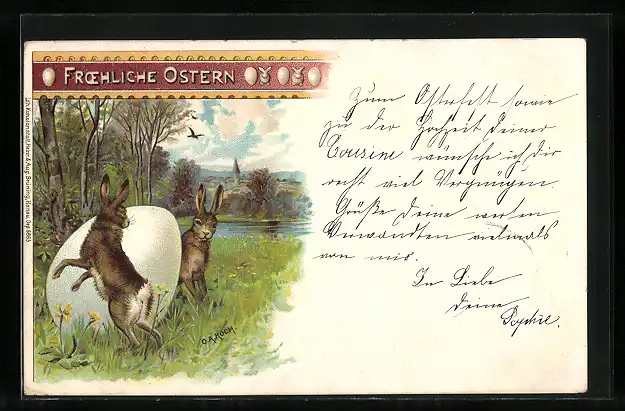 FRŒHLICHE OSTERN
Zum Osterfest sowie
zu der Hochzeit Deiner
Cousine wünsche ich Dir
recht viel Vergnügen.
Grüße Deine werthen
Verwandten vielmals
von mir.
In Liebe
Deine
Sophie.
O.A.KOCH.